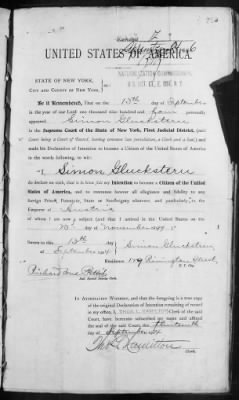 UNITED STATES OF AMERICA.
STATE OF NEW YORK,
CITY AND COUNTY OF NEW YORK,
Be it Remembered, That on the 13th day of September
in the year of our Lord one thousand nine hundred and four personally
appeared Simon Gluckstern
in the Supreme Court of the State of New York, First Judicial District, (said
Court being a Court of Record, having common law jurisdiction, a Clerk and a Seal) and
made his Declaration of Intention to become a Citizen of the United States of America
in the words following, to wit:
I, Simon Gluckstern
do declare on oath, that it is bona fide my Intention to become a Citizen of the United
States of America, and to renounce forever all allegiance and fidelity to any
foreign Prince, Potentate, State or Sovereignty whatever, and particularly to the
Emperor of Austria
of whom I am now a subject (and that I arrived in the United States on the
day of November
Sworn to this 13th day
of September
Simon Gluckstern
Residence, 179 Rivington Street,
N. Y. City
IN ATTESTATION WHEREOF, and that the foregoing is a true copy
of the original Declaration of Intention remaining of record
in my office, I, THOS. L. HAMILTON, Clerk of the said
Court, have hereunto subscribed my name and affixed
the seal of the said Court, the thirteenth
day of September
Thos L Hamilton
Clerk.